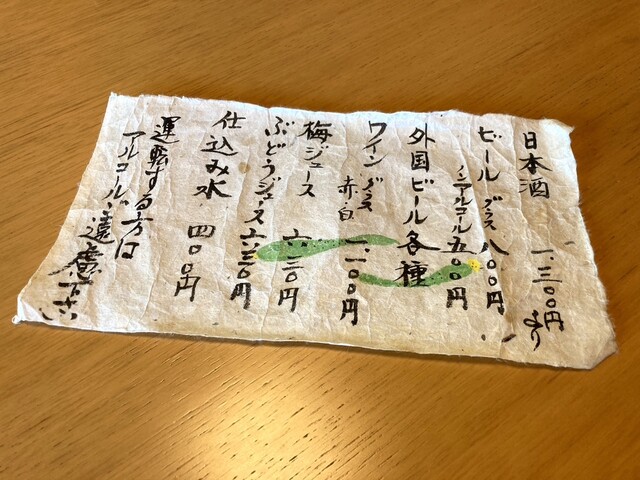 日本酒 一、三〇〇円より
ビール グラス 八〇〇円
ノンアルコール 五〇〇円
外国ビール各種
ワイン グラス 赤・白 一、一〇〇円
梅ジュース 六三〇円
ぶどうジュース 六三〇円
仕込み水 四〇〇円
運転する方は
アルコールご遠慮下さい